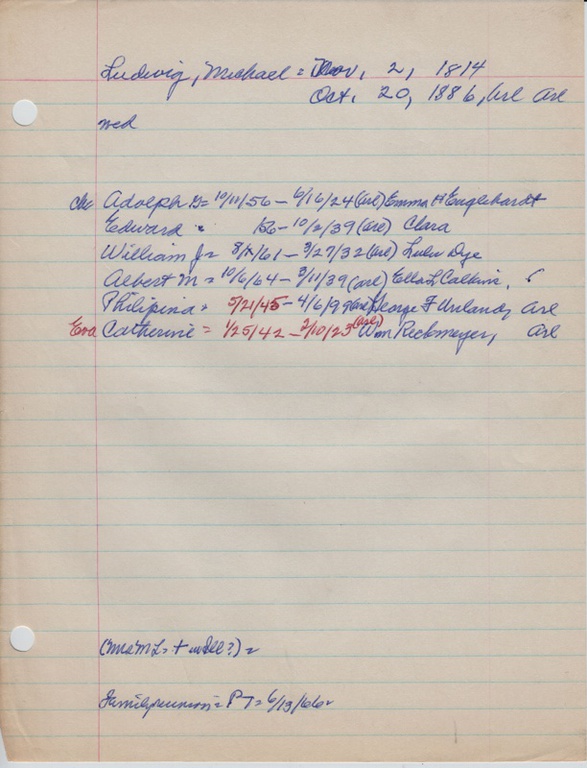 Ludwig, Michael = Nov. 2, 1814
Oct. 20, 1886, Arl Arl
wed
Ch Adolph G= 10/11/56 - 6/16/24 (arl) Emma H Englehardt
Edward = - 10/2/39 (arl) Clara
William J= 8/ /61 - 3/27/32 (arl) Lulu Dye
Albert M = 10/6/64 - 3/11/39 (arl) Ella L Calkins,
Philipina = 5/21/45 - 4/6/99 (arl) George F Urlands Arl
Eva Catherine = 1/25/42 - 2/10/23 (arl) Wm Reckmeyer, Arl
(Mrs M L = + in Ill?) =
Family reunion = P 7 = 6/13/66